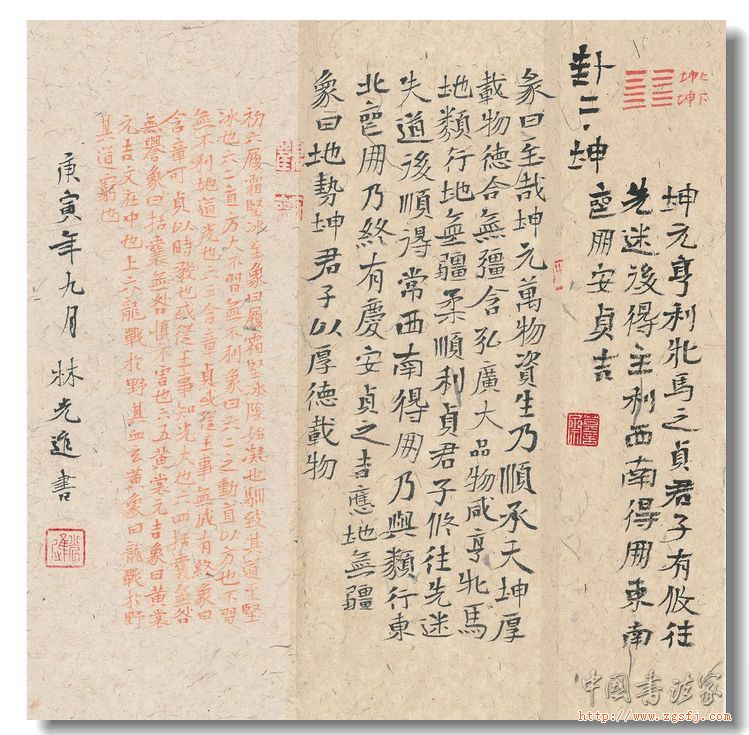 坤上
坤下
卦二·坤
坤元亨利牝馬之貞君子有攸往
先迷後得主利西南得朋東南
喪朋安貞吉
彖曰至哉坤元萬物資生乃順承天坤厚
載物德合無疆含弘廣大品物咸亨牝馬
地類行地無疆柔順利貞君子攸往先迷
失道後順得常西南得朋乃與類行東
北喪朋乃終有慶安貞之吉應地無疆
象曰地勢坤君子以厚德載物
初六履霜堅冰至象曰履霜堅冰陰始凝也馴致其道至堅
冰也六二直方大不習無不利象曰六二之動直以方也不習
無不利地道光也六三含章貞或從王事無成有終象曰
含章可貞以時發也或從王事知光大也六四括囊無咎
無譽象曰括囊無咎慎不害也六五黃裳元吉象曰黃裳
元吉文在中也上六龍戰於野其血玄黃象曰龍戰於野
其道窮也
庚寅年九月林光進書
中國書法家
http://www.zgsfj.com